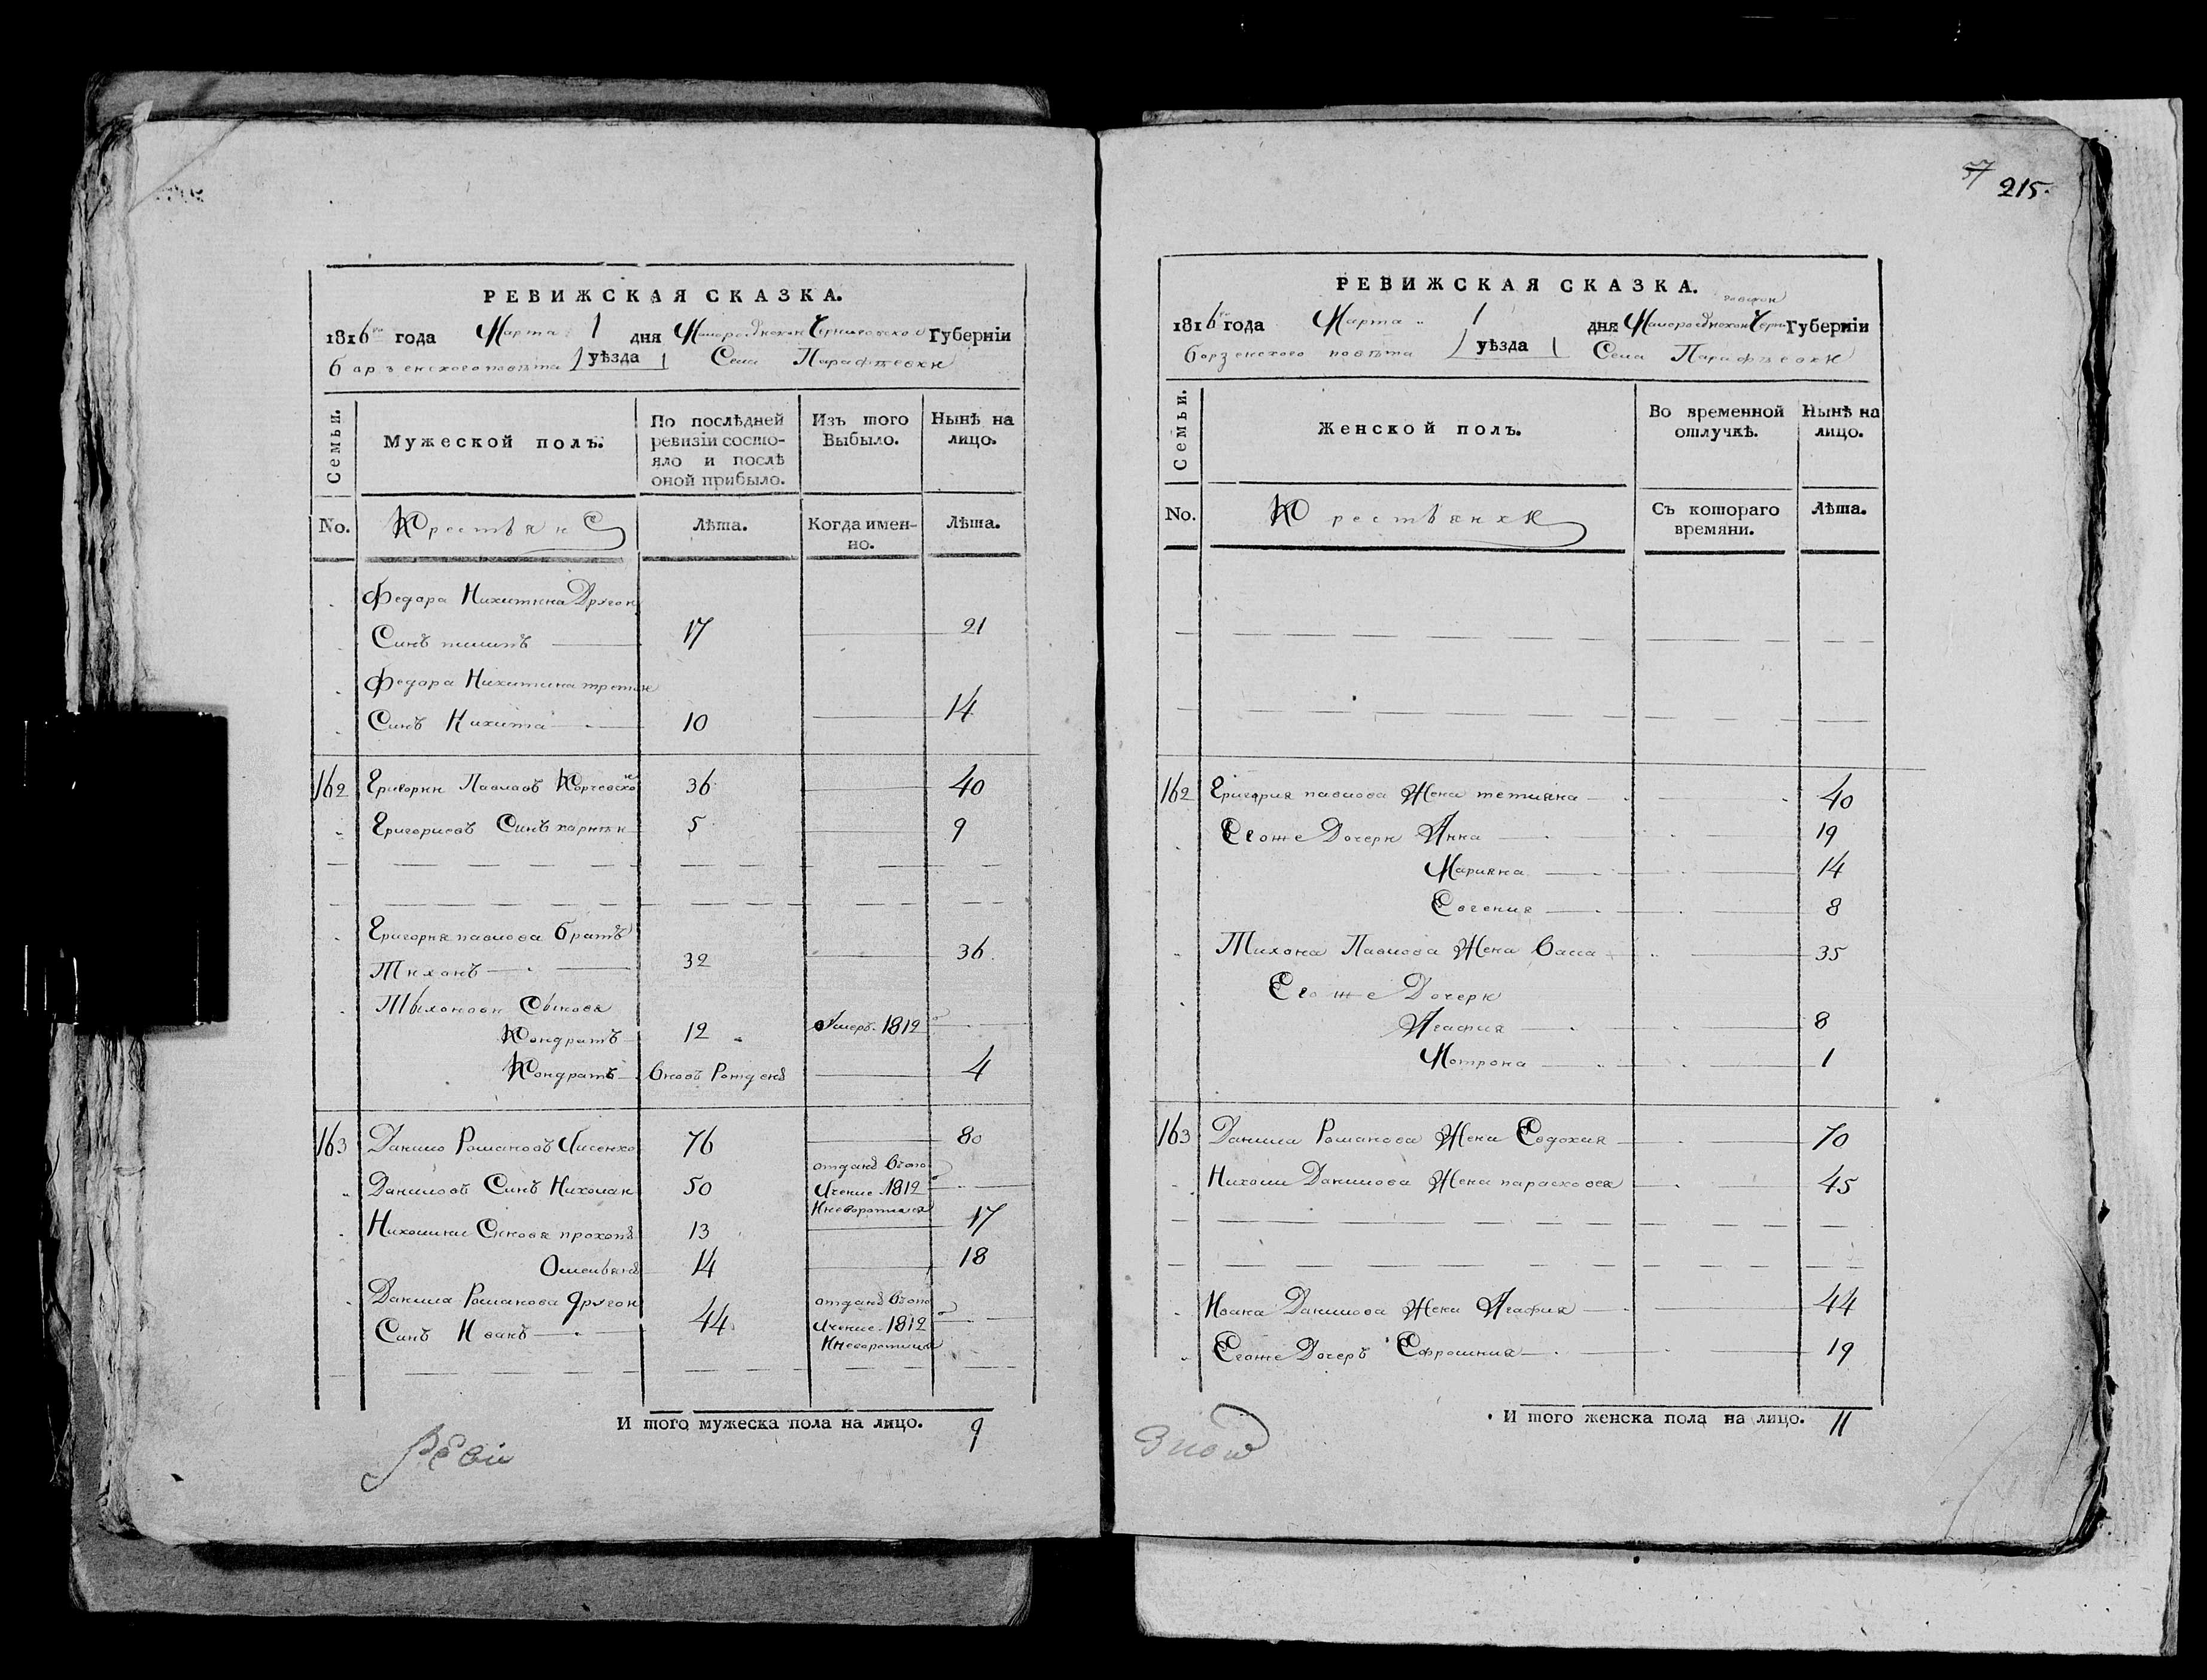 РЕВИЖСКАЯ СКАЗКА.
1816го года Марта 1 дня Малороссійской Черниговской Губерніи
борзенского повѣта уѣзда Села Парафѣевки
Семьи.
Мужеской полъ.
По послѣдней ревизіи состо-
яло и послѣ
оной прибыло.
Изъ того
Выбыло.
Нынѣ на
лицо.
No.
Крестьяне
Лѣта.
Когда имен-
но.
Лѣта.
Федора Никитина Другой
Синъ 17 21
Федора Никитина третий
Синъ Никита 10 14
162 Григорий Павловъ 36 40
Григориевъ Синъ 5 9
Григорія павлова братъ
Тихонъ 32 36
Тыхоновы Сынова
Кондратъ 12 Умеръ 1812
Кондратъ вновь Рожденъ 4
163 Данило Романовъ Лисенко 76 80
Даниловъ Синъ Николай 50 отданъ в ополчение 1812 и неворотился
Николины Синовя прокопъ 13 17
Омельянъ 14 18
Данила Романова другой
Синъ Иванъ 44 отданъ в ополчение 1812 и неворотился
И того мужеска пола на лицо. 9
57 215.
РЕВИЖСКАЯ СКАЗКА.
1816го года Марта 1 дня Малороссійской Черниговской Губерніи
борзенского повѣта уѣзда Села Парафѣевки
Семьи.
Женской полъ.
Во временной
отлучкѣ.
Нынѣ на
лицо.
No.
Крестьянки
Съ котораго
времяни.
Лѣта.
162 Григория павлова Жена тетияна 40
Егоже Дочери Анна 19
Марияна 14
Евгения 8
Тихона Павлова Жена Васса 35
Егоже Дочери
Агафия 8
Мотрона 1
163 Данила Романова Жена Евдокия 70
Николи Данилова Жена парасковея 45
Ивана Данилова Жена Агафия 44
Егоже Дочеръ Ефросиния 19
И того женска пола на лицо. 11